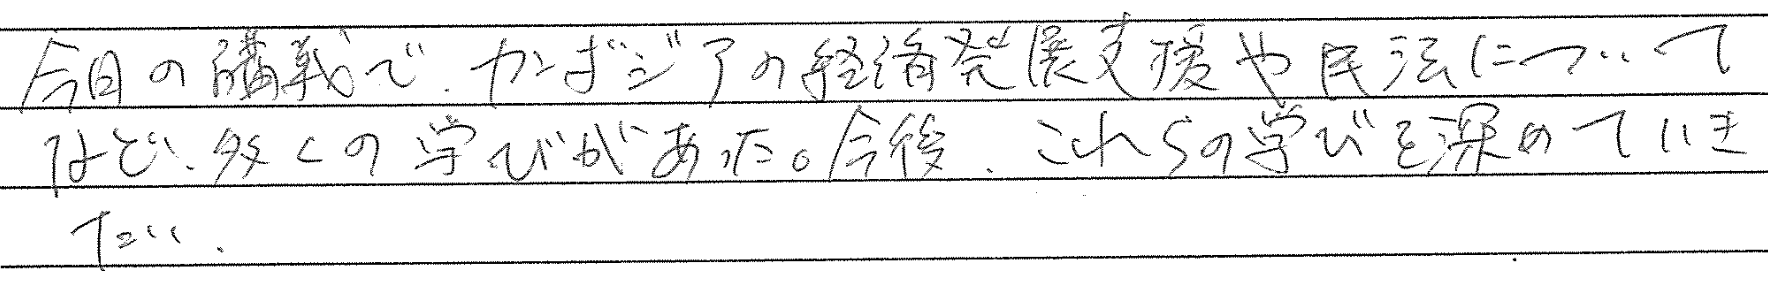 今日の講義で、カンボジアの経済発展支援や民法について
など、多くの学びがあった。今後、これらの学びを深めていき
たい。